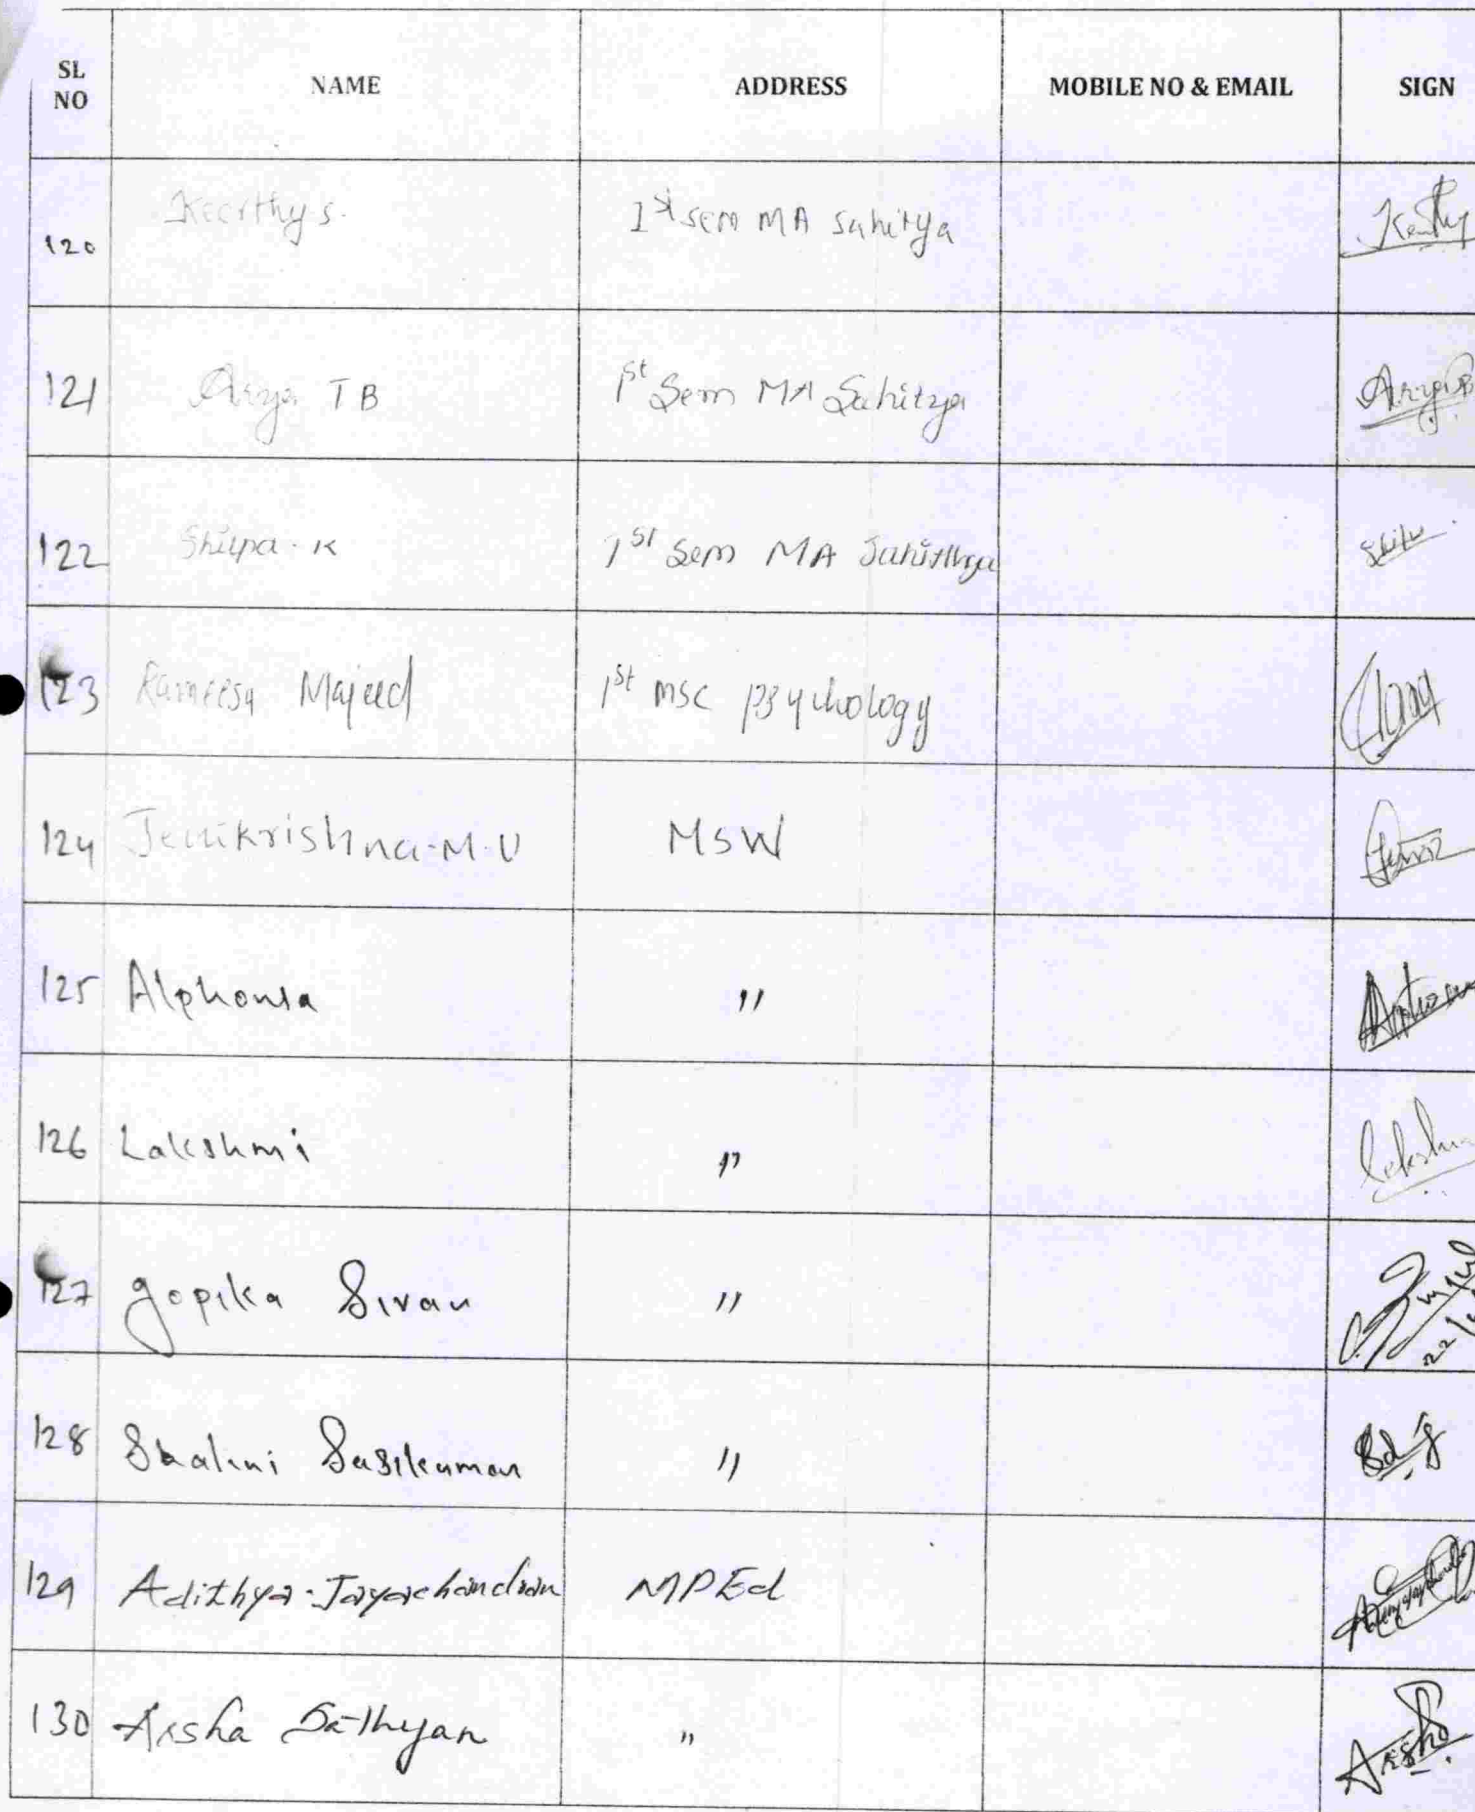 SL NO NAME ADDRESS MOBILE NO & EMAIL SIGN
120 Keerthy s. 1st sem MA sahitya Keerthy
121 Arya T B 1st Sem MA Sahitya Arya
122 Shilpa. K 1st Sem MA Sahithya
123 Rameesa Majeed 1st msc psychology
124 Jenikrishna.M.U MSW
125 Alphonsa "
126 Lakshmi " Lekshmi
127 Gopika Sivan "
128 Shalini Sasikumar "
129 Adithya Jayachandran MPEd
130 Arsha Sathyan " Arsha